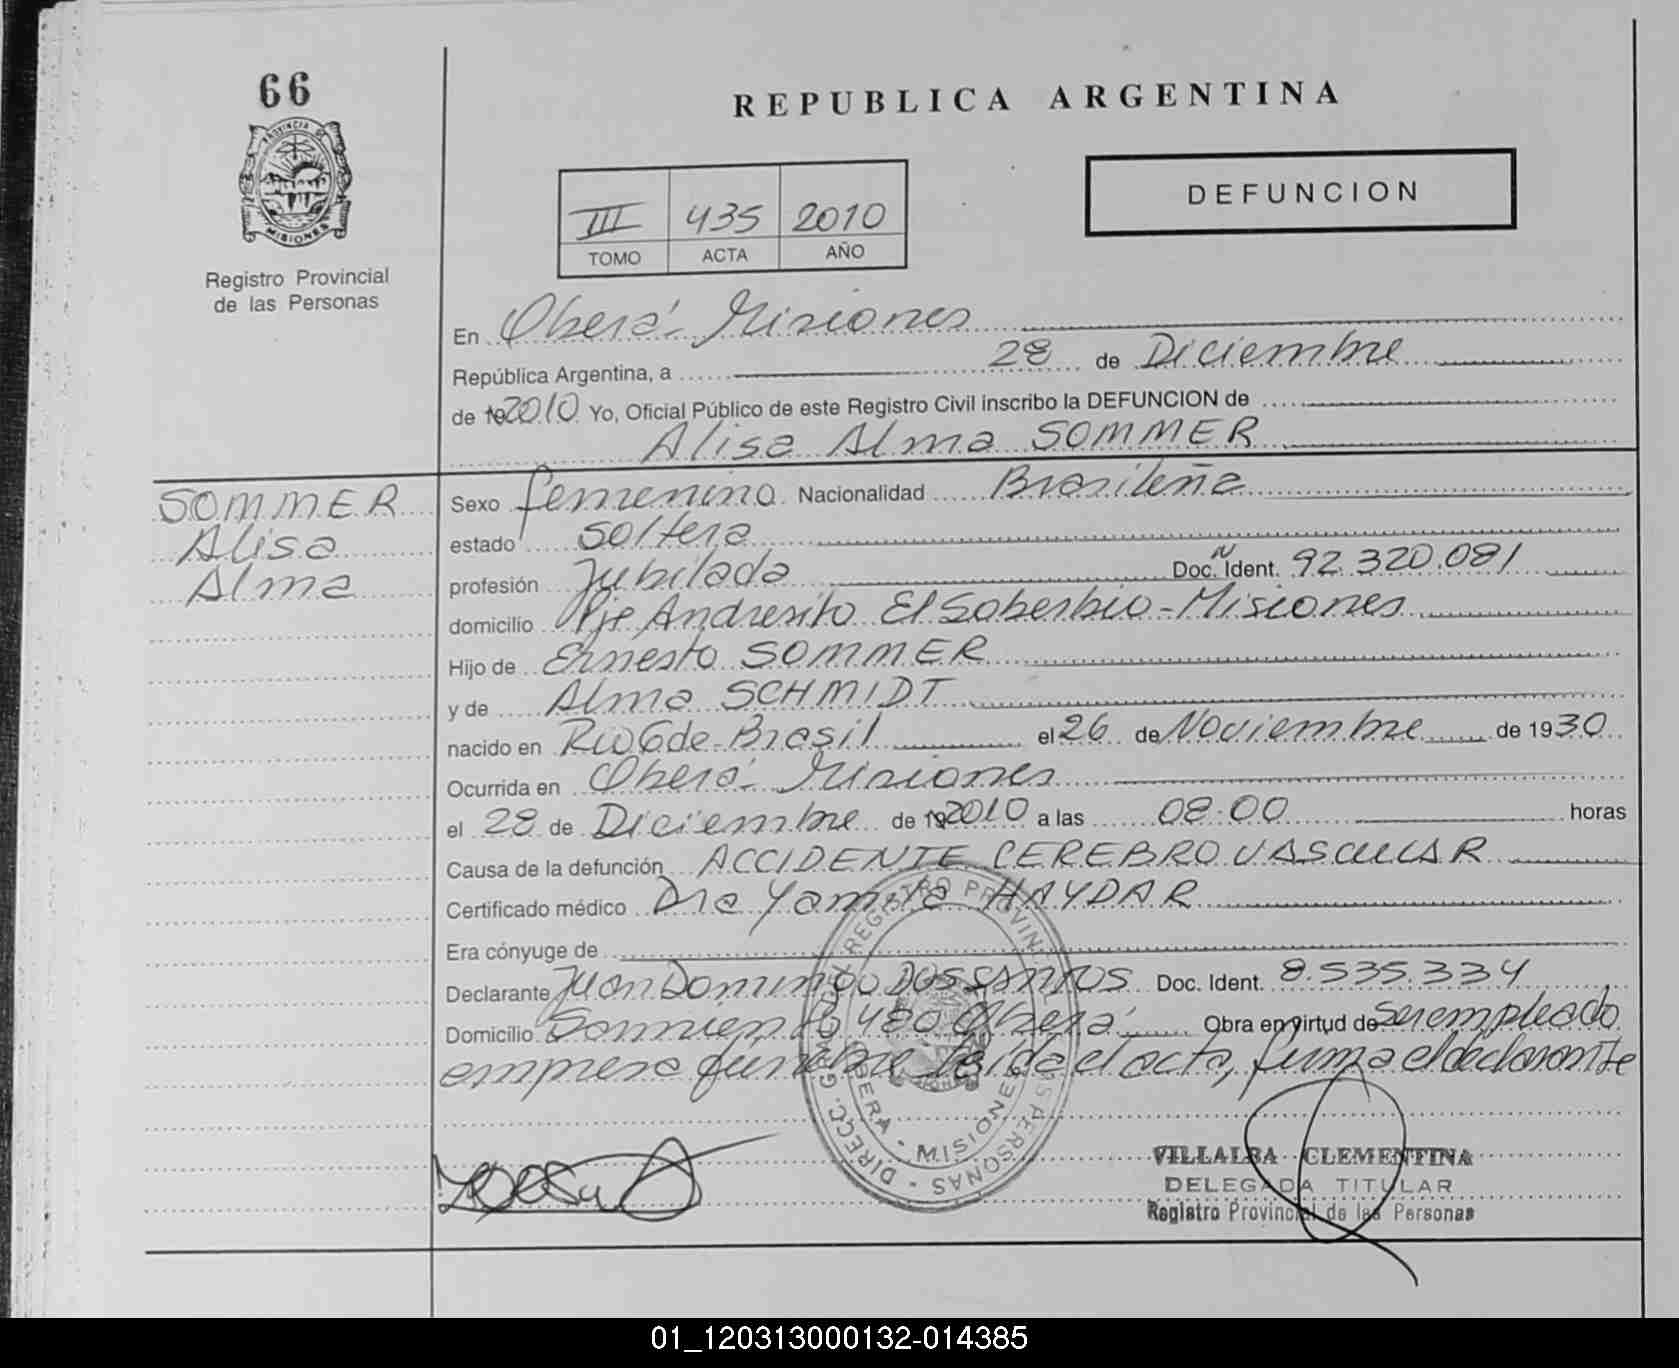 66
PROVINCIA DE
MISIONES
Registro Provincial
de las Personas
REPUBLICA ARGENTINA
DEFUNCION
III 435 2010
TOMO ACTA AÑO
En Oberá - Misiones
República Argentina, a 28 de Diciembre
de 192010 Yo, Oficial Público de este Registro Civil inscribo la DEFUNCION de
Alisa Alma SOMMER
SOMMER
Alisa
Alma
Sexo femenino Nacionalidad Brasileña
estado soltera
profesión Jubilada Doc. Ident. 92.320.081
domicilio Pje Andresito El Soberbio - Misiones
Hijo de Ernesto SOMMER
y de Alma SCHMIDT
nacido en Rio G de - Brasil el 26 de Noviembre de 1930
Ocurrida en Oberá - Misiones
el 28 de Diciembre de 192010 a las 08:00 horas
Causa de la defunción ACCIDENTE CEREBRO VASCULAR
Certificado médico Dra Yamila HAYDAR
Era cónyuge de
Declarante Juan Domingo DOS SANTOS Doc. Ident. 8.535.334
Domicilio Sarmiento 480 Oberá Obra en virtud de ser empleado
empresa fúnebre leída el acta, firma el declarante
DIRECC. GRAL. DEL REGISTRO PROVINCIAL DE LAS PERSONAS -
OBERA - MISIONES
VILLALBA CLEMENTINA
DELEGADA TITULAR
Registro Provincial de las Personas
01_120313000132-014385